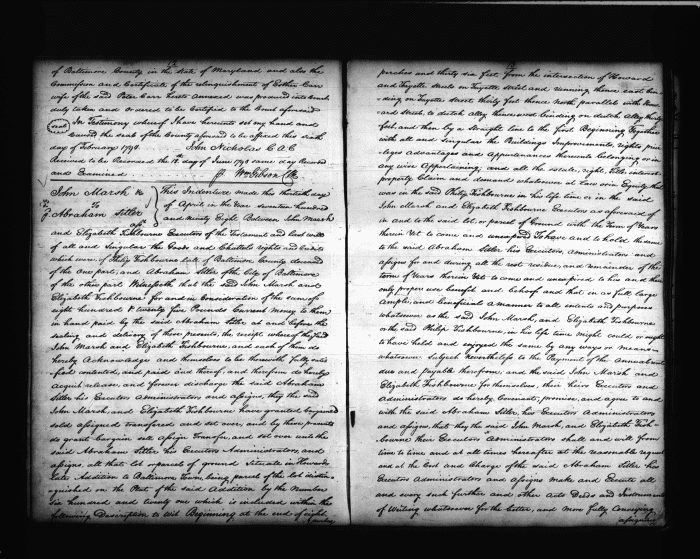 of Baltimore County in the State of Maryland and also the
Commission and Certificate of the relinquishment of Esther Carr
wife of the said Peter Carr hereto annexed was proved into Court
duly taken and ordered to be Certified to the Court aforesaid
Seal In Testimony whereof I have hereunto set my hand and
Caused the seal of the County aforesaid to be affixed this sixth
day of February 1798. John Nicholas C A C
Received to be Recorded the 12th day of June 1798 same day Recorded
and Examined Wm Gibson Clk
John Marsh &c
To
Abraham Sitler
This Indenture made this thirteenth day
of April in the Year seventeen hundred
and Ninety Eight Between John Marsh
and Elizabeth Fishbourne Executors of the Testament and last will
of all and Singular the Goods and Chattels rights and Credits
which were of Philip Fishbourne late of Baltimore County deceased
of the one part, and Abraham Sitler of the City of Baltimore
of the other part Witnesseth that the said John Marsh and
Elizabeth Fishbourne for and in Consideration of the sum of
eight hundred & twenty five Pounds Current money to them
in hand paid by the said Abraham Sitler at and before the
sealing and delivery of these presents the receipt whereof they the said
John Marsh and Elizabeth Fishbourne, and each of them do
hereby Acknowledge and themselves to be therewith fully satis
fied contented, and paid and thereof, and therefrom do hereby
acquit release, and forever discharge the said Abraham
Sitler his Executors administrators and assigns, they the said
John Marsh, and Elizabeth Fishbourne have granted bargained
sold assigned transfered and set over, and by these presents
do grant bargain sell assign Transfer, and set over unto the
said Abraham Sitler his Executors Administrators, and
assigns, all that lot or parcel of ground Situate in Howards
Late Addition to Baltimore Town, being parcel of the lot distin
guished on the Plat of the said Addition by the Number
Six hundred and twenty one which is included within the
following Description to Wit Beginning at the end of eight
perches and thirty six feet from the intersection of Howard
and Fayette streets on Fayette street and running thence east bin
ding on Fayette street thirty feet thence North parallel with How
ard street to dutch alley thence west binding on dutch alley thirty
feet, and then by a straight line to the first Beginning Together
with all and singular the Buildings Improvements, rights pri
viliges Advantages and Appurtenances thereunto belonging or in
any wise Appertaining, and all the estate, right, title interest
property Claim and demand whatsoever at Law or in Equity that
was in the said Philip Fishbourne in his life time or in the said
John Marsh and Elizabeth Fishbourne Executors as aforesaid of
in and to the said lot or parcel of Ground with the Term of Years
therein Yet to come and unexpired To have and to hold the same
to the said Abraham Sitler his Executors Administrators and
assigns for and during all the rest residue, and remainder of the
term of Years therein Yet to come and unexpired to his and their
only proper use benefit and behoof and that in as full large
ample, and beneficial a manner to all intents and purposes
whatsoever as the said John Marsh, and Elizabeth Fishbourne
or the said Philip Fishbourne, in his life time might could or ought
to have held and enjoyed the same by any ways or means
whatsoever Subject Nevertheless to the Payment of the Annual rent
due and payable therefrom, and the said John Marsh and
Elizabeth Fishbourne for themselves, their heirs Executors and
Administrators do hereby Covenant, promise, and agree to and
with the said Abraham Sitler, his Executors Administrators
and assigns, that they the said John Marsh, and Elizabeth Fish
bourne their Executors or Administrators shall and will from
time to time and at all times hereafter at the reasonable request
and at the Cost and Charge of the said Abraham Sitler his
Executors Administrators and assigns Make and Execute all
and every such further and other Acts Deeds and Instruments
of Writing whatsoever for the better, and more fully Conveying